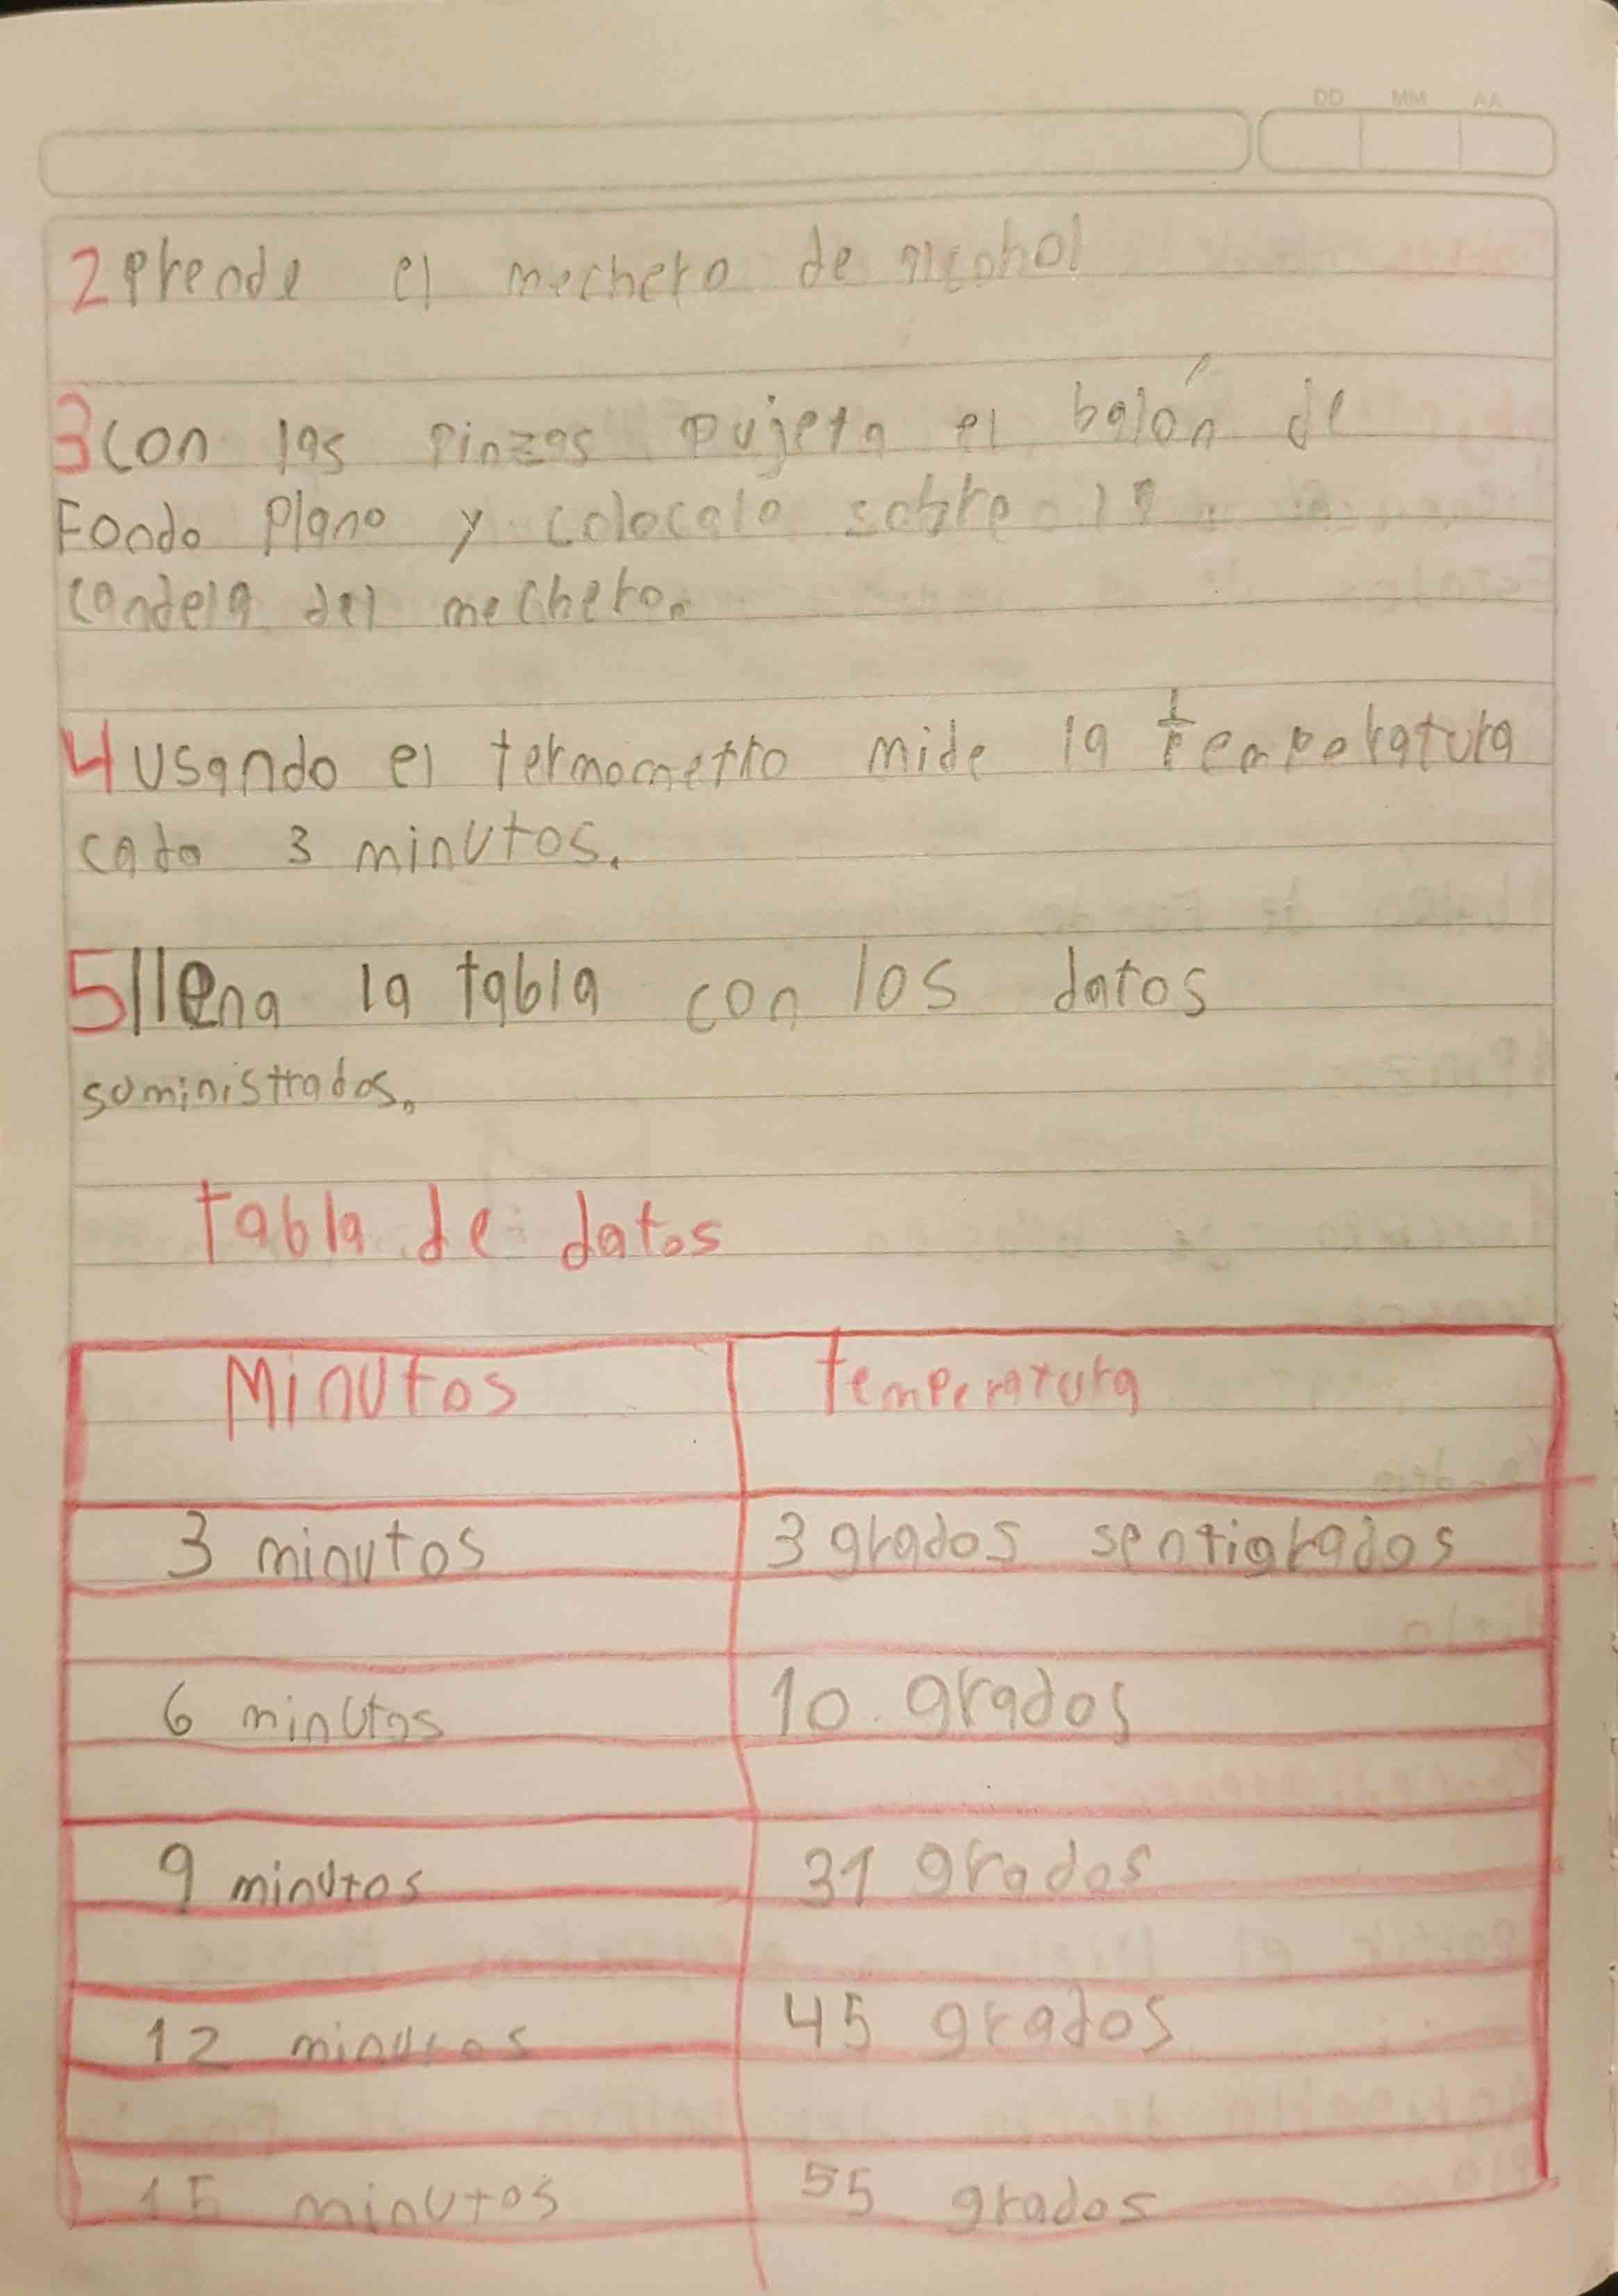 DD MM AA
2 Prende el mechero de alcohol
3 con las Pinzas sujeta el balón de
Fondo Plano y colocalo sobre la
candela del mechero.
4 Usando el termometro mide la temperatura
cada 3 minutos.
5 llena la tabla con los datos
suministrados.
tabla de datos
Minutos temperatura
3 minutos 3 grados sentigrados
6 minutos 10 grados
9 minutos 31 grados
12 minutos 45 grados
15 minutos 55 grados